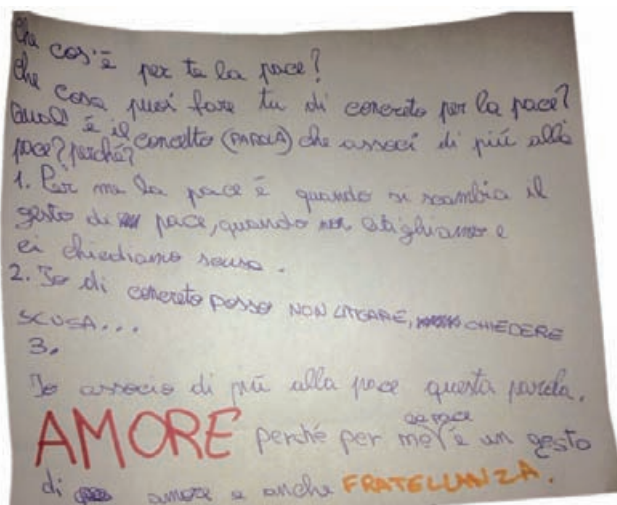 Che cos'è per te la pace?
Che cosa puoi fare tu di concreto per la pace?
Qual è il concetto (PAROLA) che associ di più alla
pace? perché?
1. Per me la pace è quando si scambia il
gesto di pace, quando non litighiamo e
ci chiediamo scusa.
2. Io di concreto posso NON LITIGARE, CHIEDERE
SCUSA...
3.
Io associo di più alla pace questa parola.
AMORE perché per me la pace è un gesto
di amore e anche FRATELLANZA.